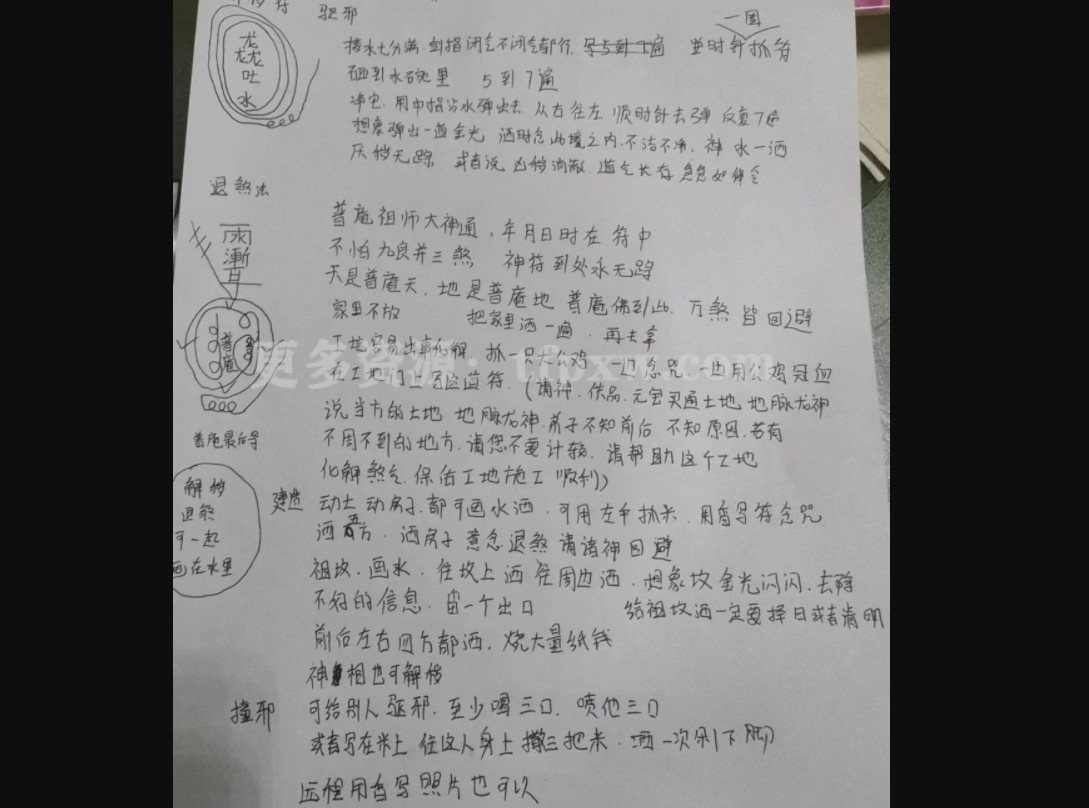 驱邪
一圈
龙龙龙
吐
水
接水七分满,剑指闭气不闭气都行 写5到7遍 逆时针抓符
砸到水碗里 5到7遍
净宅,用中指沾水弹出去,从右往左,顺时针去弹 反复7遍
想象弹出一道金光 洒时念此境之内,不洁不净,神水一洒
灰秽无踪 或者说 凶秽消散,道气长存 急急如律令
退煞法
雨
渐
耳
普庵
普庵祖师大神通,年月日时在符中
不怕九良并三煞 神符到处永无踪
天是普庵天,地是普庵地 普庵佛到此,万煞皆回避
家里不放 把家里洒一遍,再去拿
工地容易出事化解 抓一只大公鸡 一边念咒一边用公鸡冠血
在工地门上画这道符.(请神,供品,元宝买通土地,地脉龙神
说当方的土地 地脉龙神,弟子不知前后 不知原因,若有
不周不到的地方,请您不要计较,请帮助这个工地
化解煞气,保佑工地施工顺利)
普庵最后写
解秽
退煞
可一起
画在水里
建造 动土 动房子,都可画水洒,可用左手抓米,用香写符念咒
洒五方,洒房子 意念退煞 请诸神回避
祖坟,画水,往坟上洒 往周边洒,想象坟金光闪闪,去除
不好的信息,留一个出口 给祖坟洒一定要择日或者清明
前后左右四方都洒,烧大量纸钱
神相也可解秽
撞邪 可给别人驱邪,至少喝三口,喷他三口
或者写在米上 往这人身上撒三把米,洒一次剁下脚
远程用香写照片也可以
更多资源:tfbxw.com